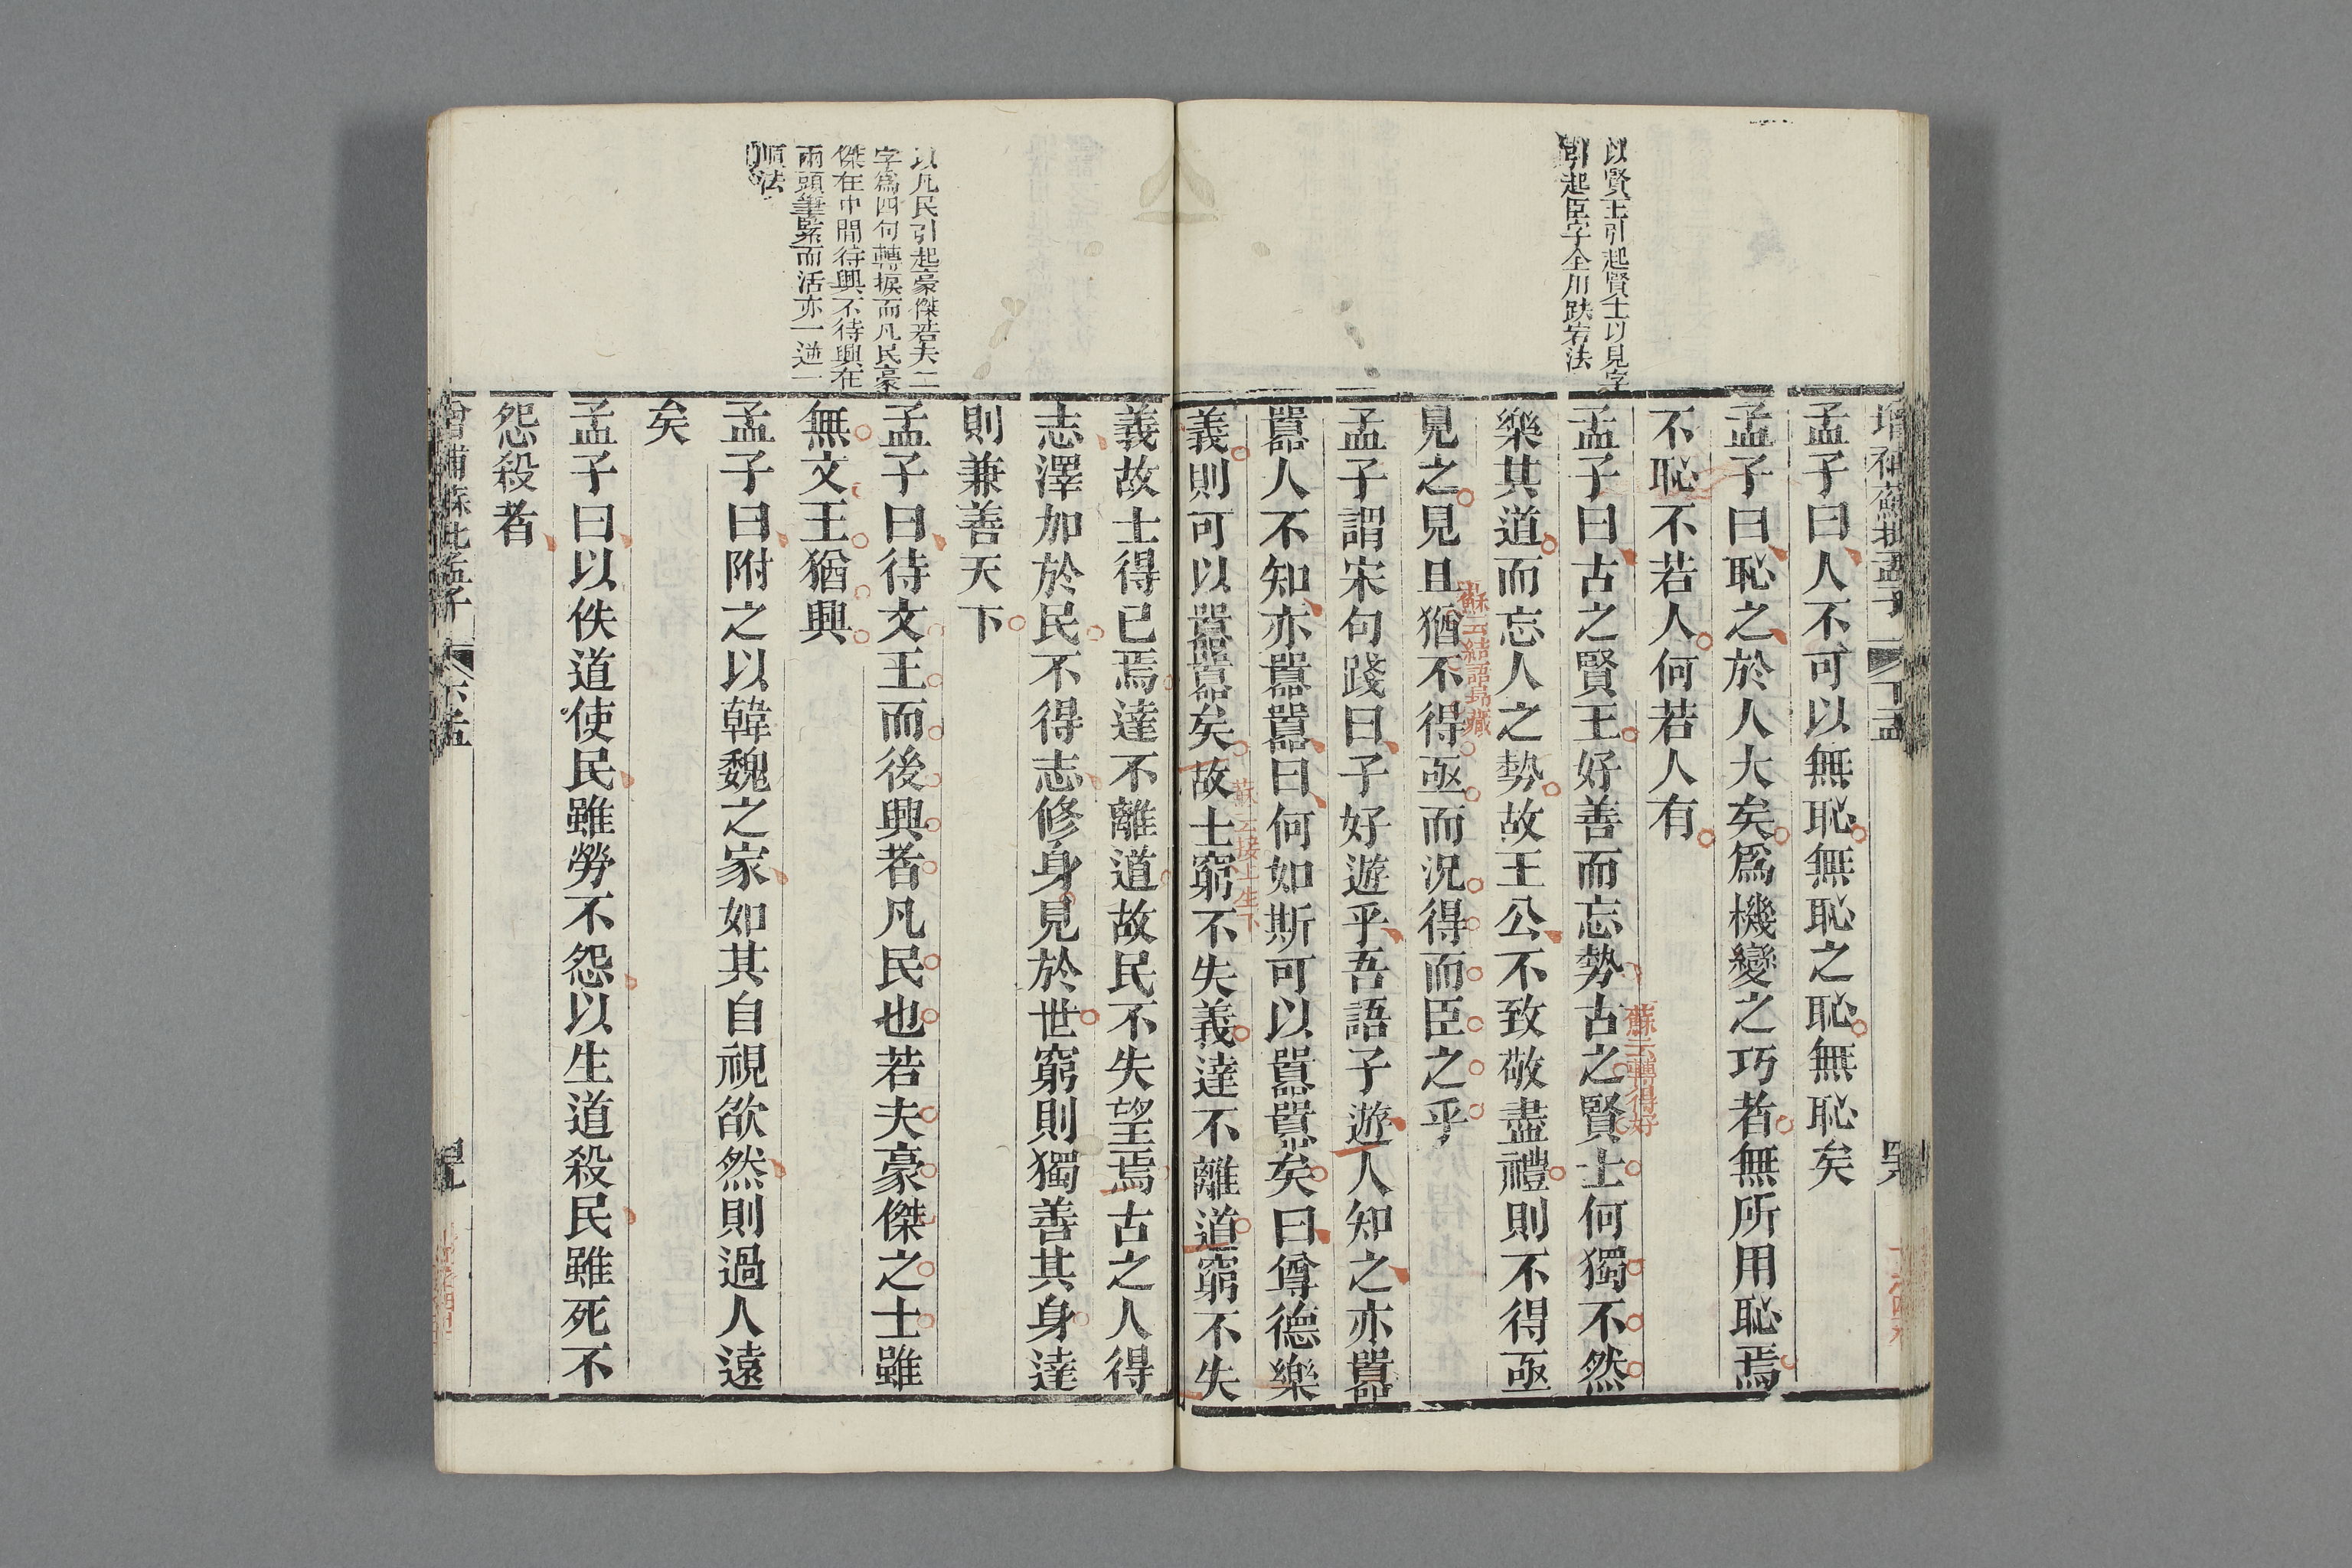 以賢王引起賢士以見字
引起臣字全用跌宕法
孟子曰人不可以無恥無恥之恥無恥矣
孟子曰恥之於人大矣爲機變之巧者無所用恥焉
不恥不若人何若人有
孟子曰古之賢王好善而忘勢古之賢士何獨不然
蘇云轉得好
樂其道而忘人之勢故王公不致敬盡禮則不得亟
見之見且猶不得亟而況得而臣之乎
蘇云結語
孟子謂宋句踐曰子好遊乎吾語子遊人知之亦囂
囂人不知亦囂囂曰何如斯可以囂囂矣曰尊德樂
義則可以囂囂矣故士窮不失義達不離道窮不失
蘇云接上生下
以凡民引起豪傑若夫二
字爲四句轉捩而凡民豪
傑在中間待興不待興在
兩頭筆緊而活亦一逆一
順法
義故士得已焉達不離道故民不失望焉古之人得
志澤加於民不得志修身見於世窮則獨善其身達
則兼善天下
孟子曰待文王而後興者凡民也若夫豪傑之士雖
無文王猶興
孟子曰附之以韓魏之家如其自視欿然則過人遠
矣
孟子曰以佚道使民雖勞不怨以生道殺民雖死不
怨殺者